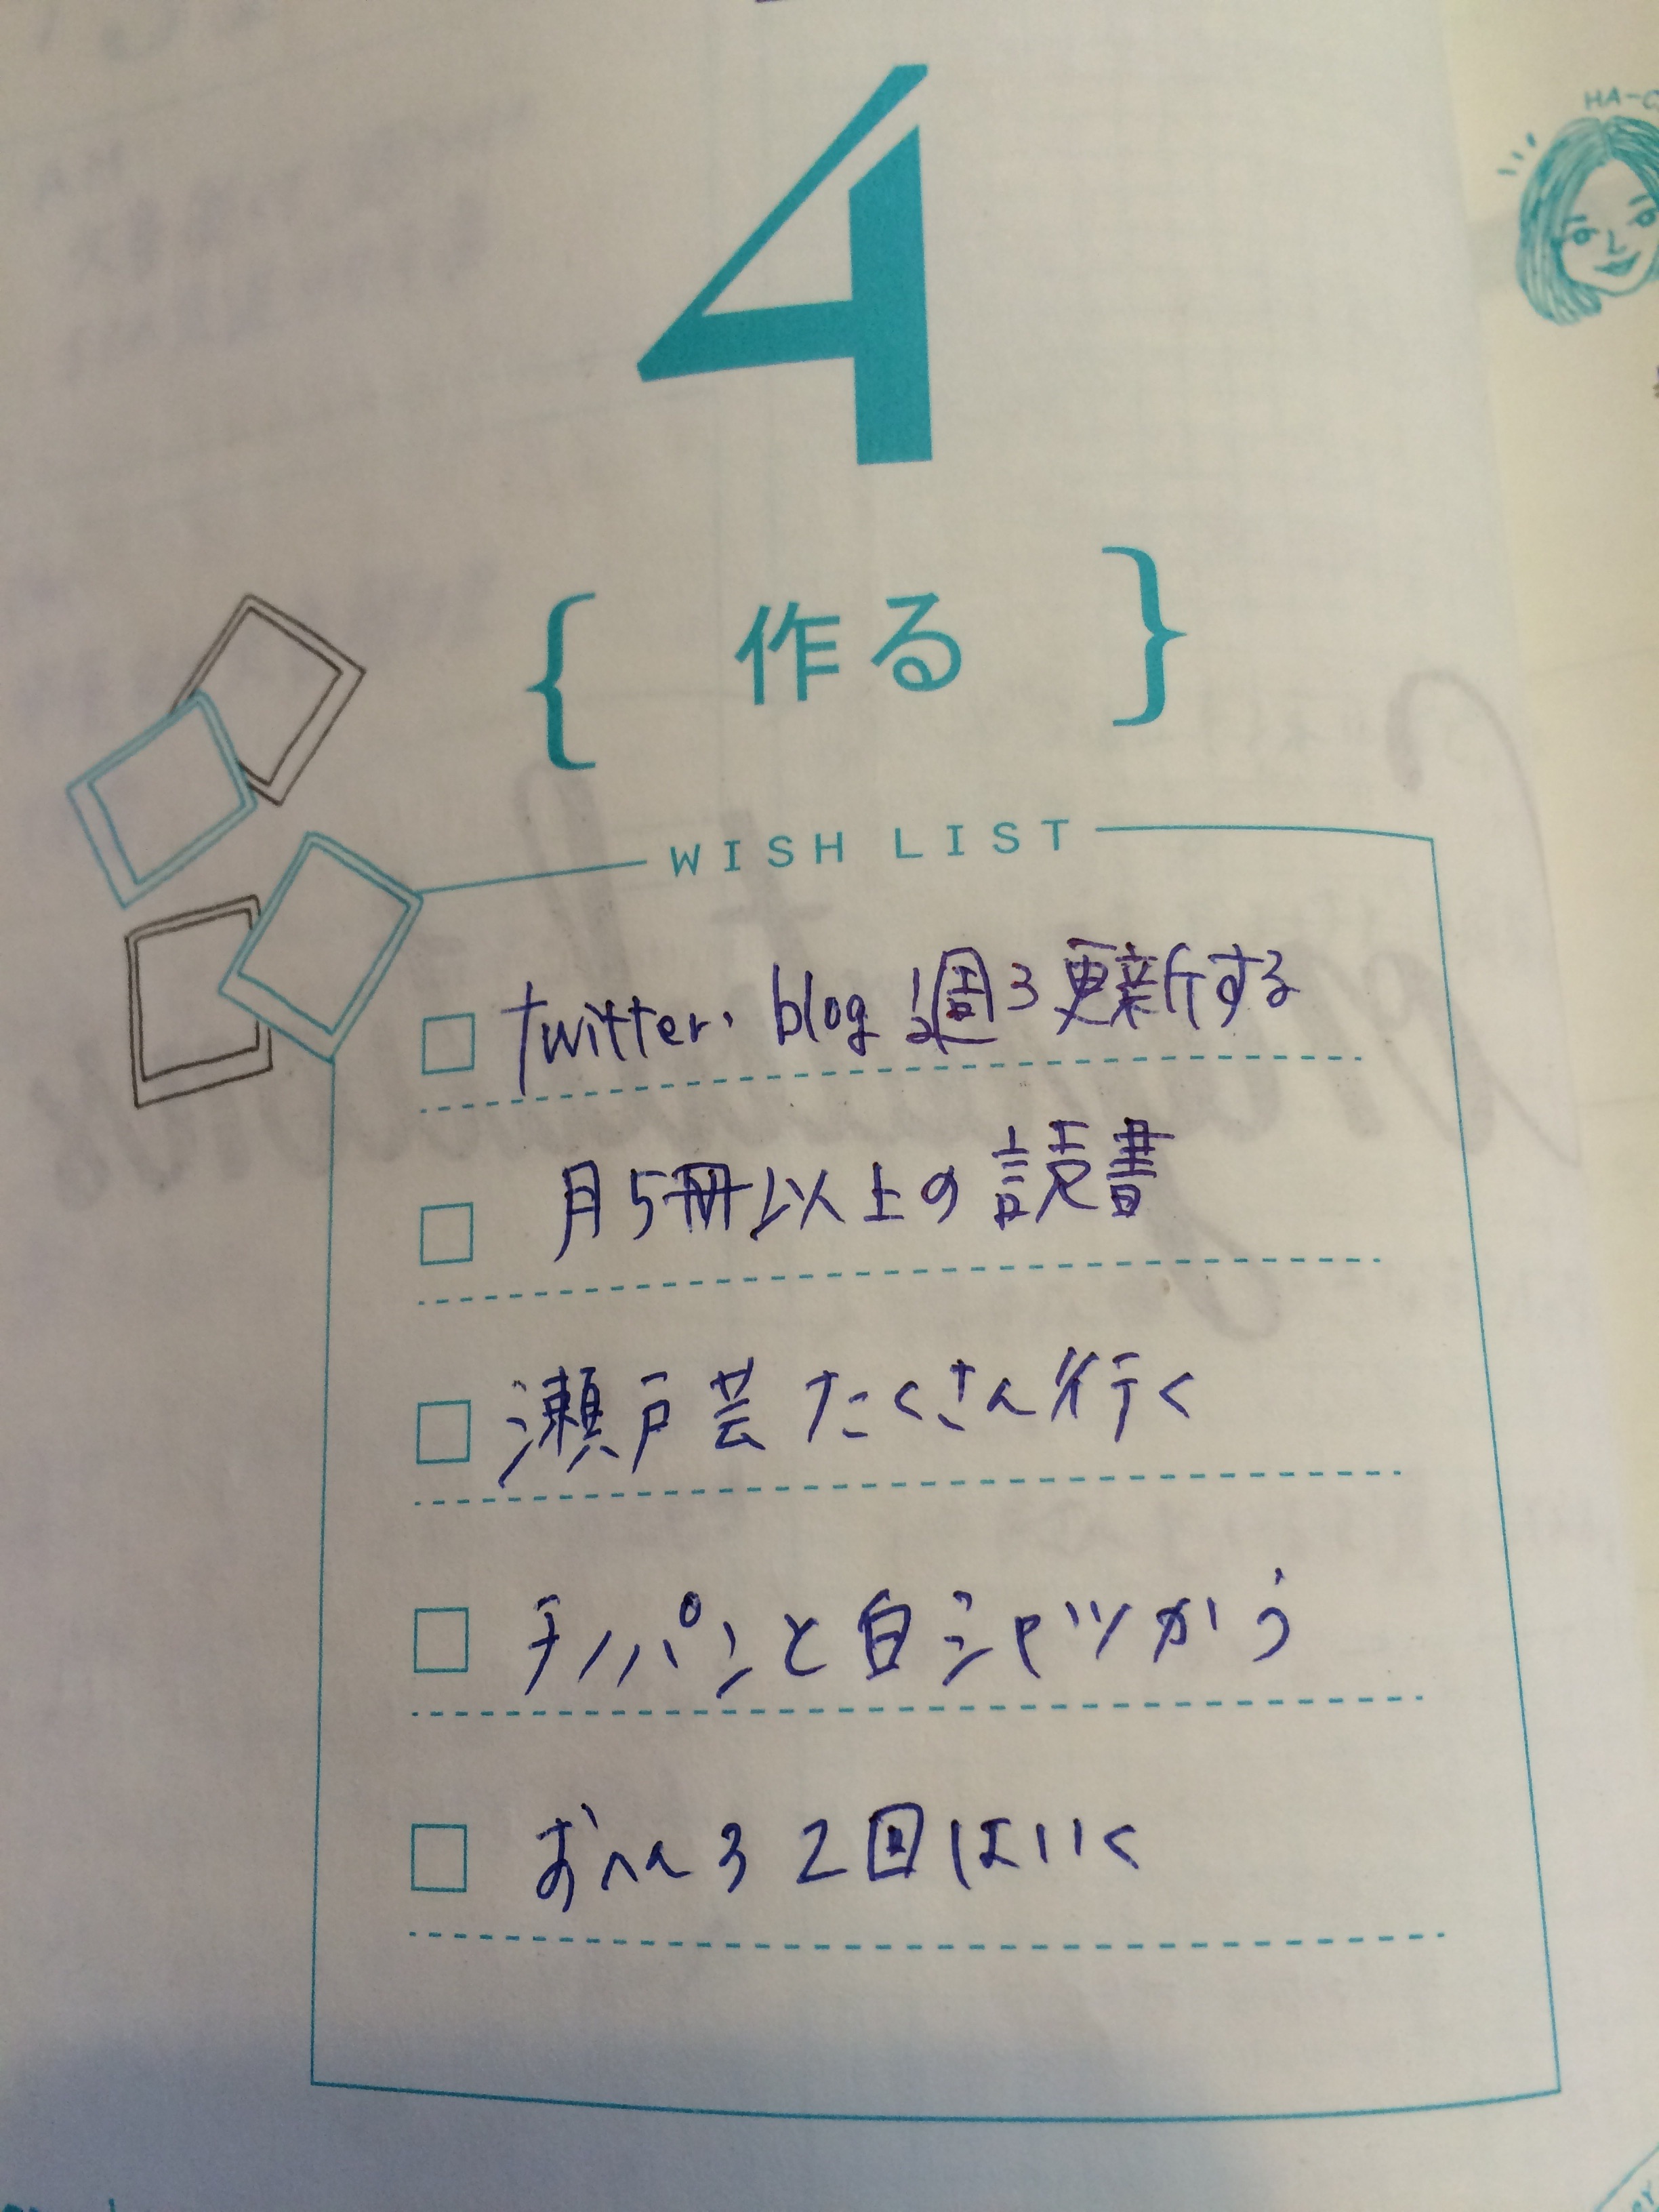 HA-C
4
{ 作る }
WISH LIST
twitter、blog 週3更新する
月5冊以上の読書
瀬戸芸たくさん行く
チノパンと白シャツかう
おへんろ2回はいく